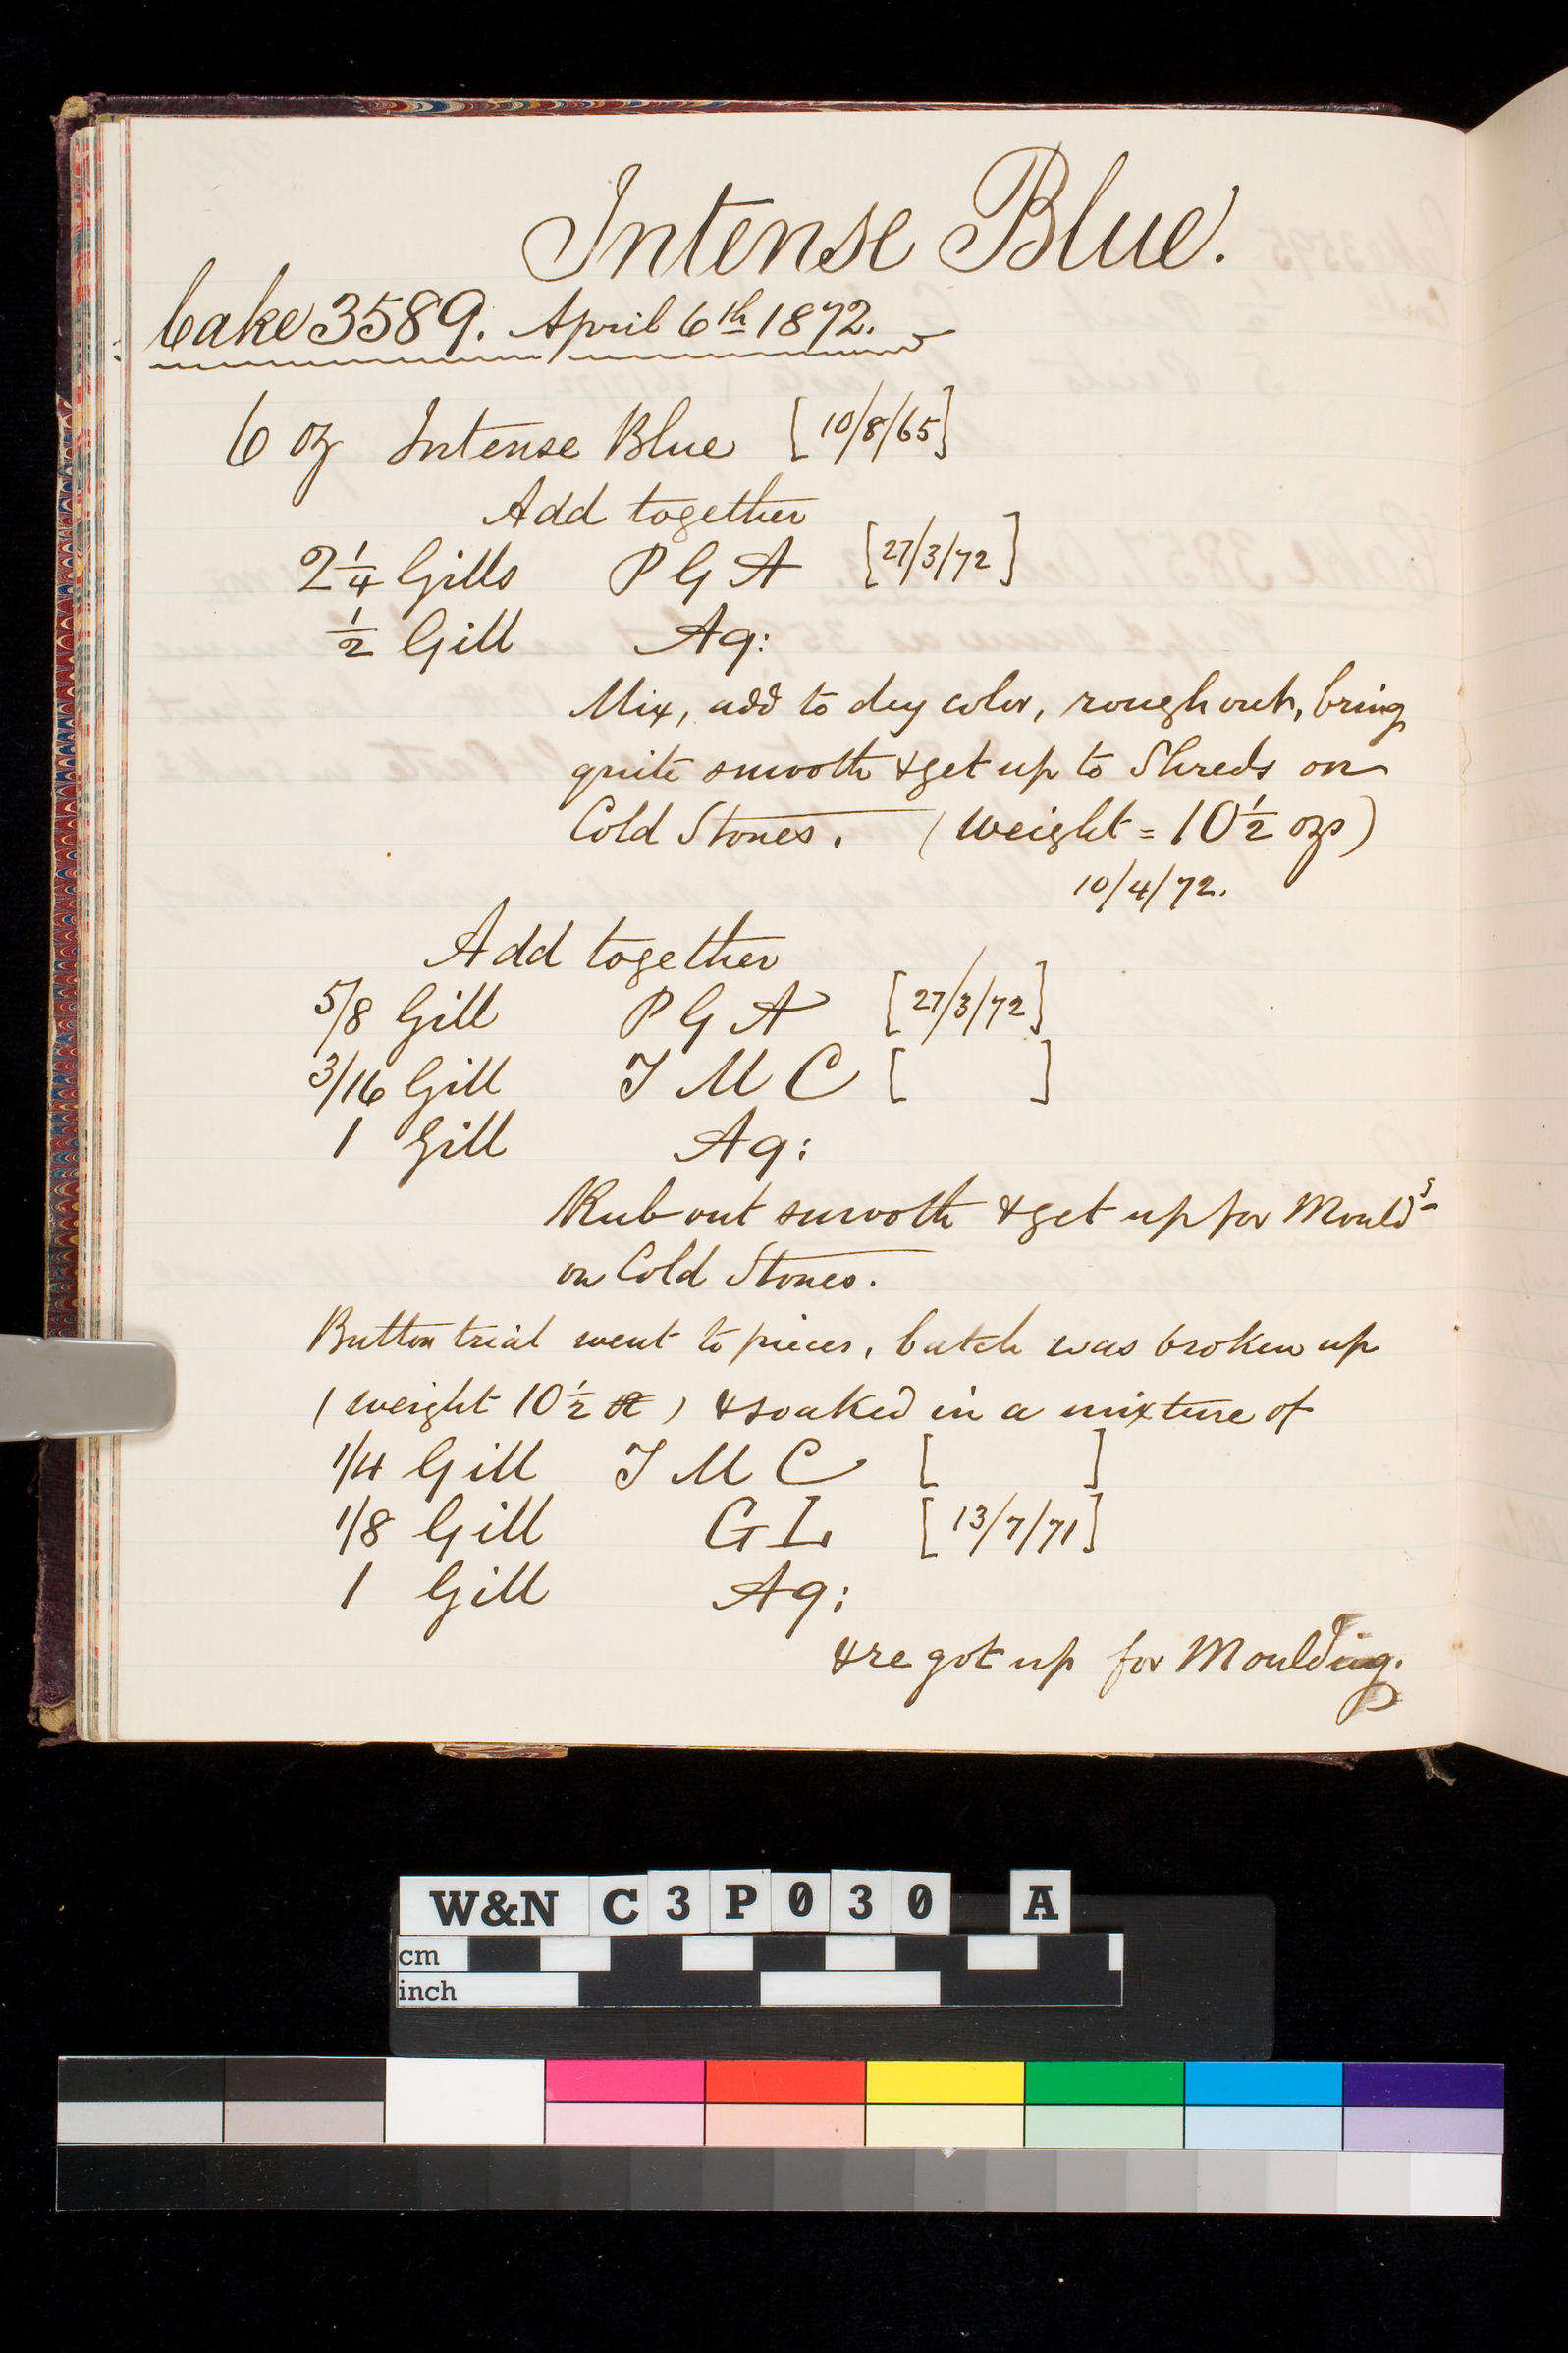 Intense Blue.
Cake 3589. April 6th 1872.
6 oz Intense Blue [10/8/65]
Add together
2 1/4 Gills P G A [27/3/72]
1/2 Gill Aq:
Mix, add to dry color, rough out, bring
quite smooth & get up to Shreds on
Cold Stones. (weight = 10 1/2 ozs)
10/4/72.
Add together
5/8 Gill P G A [27/3/72]
3/16 Gill T M C [ ]
1 Gill Aq:
Rub out smooth & get up for Mouldg
on Cold Stones.
Button trial went to pieces, batch was broken up
(weight 10 1/2 ) & soaked in a mixture of
1/4 Gill T M C [ ]
1/8 Gill G L [13/7/71]
1 Gill Aq:
& re got up for Moulding.
W&N C3P030 A
cm
inch